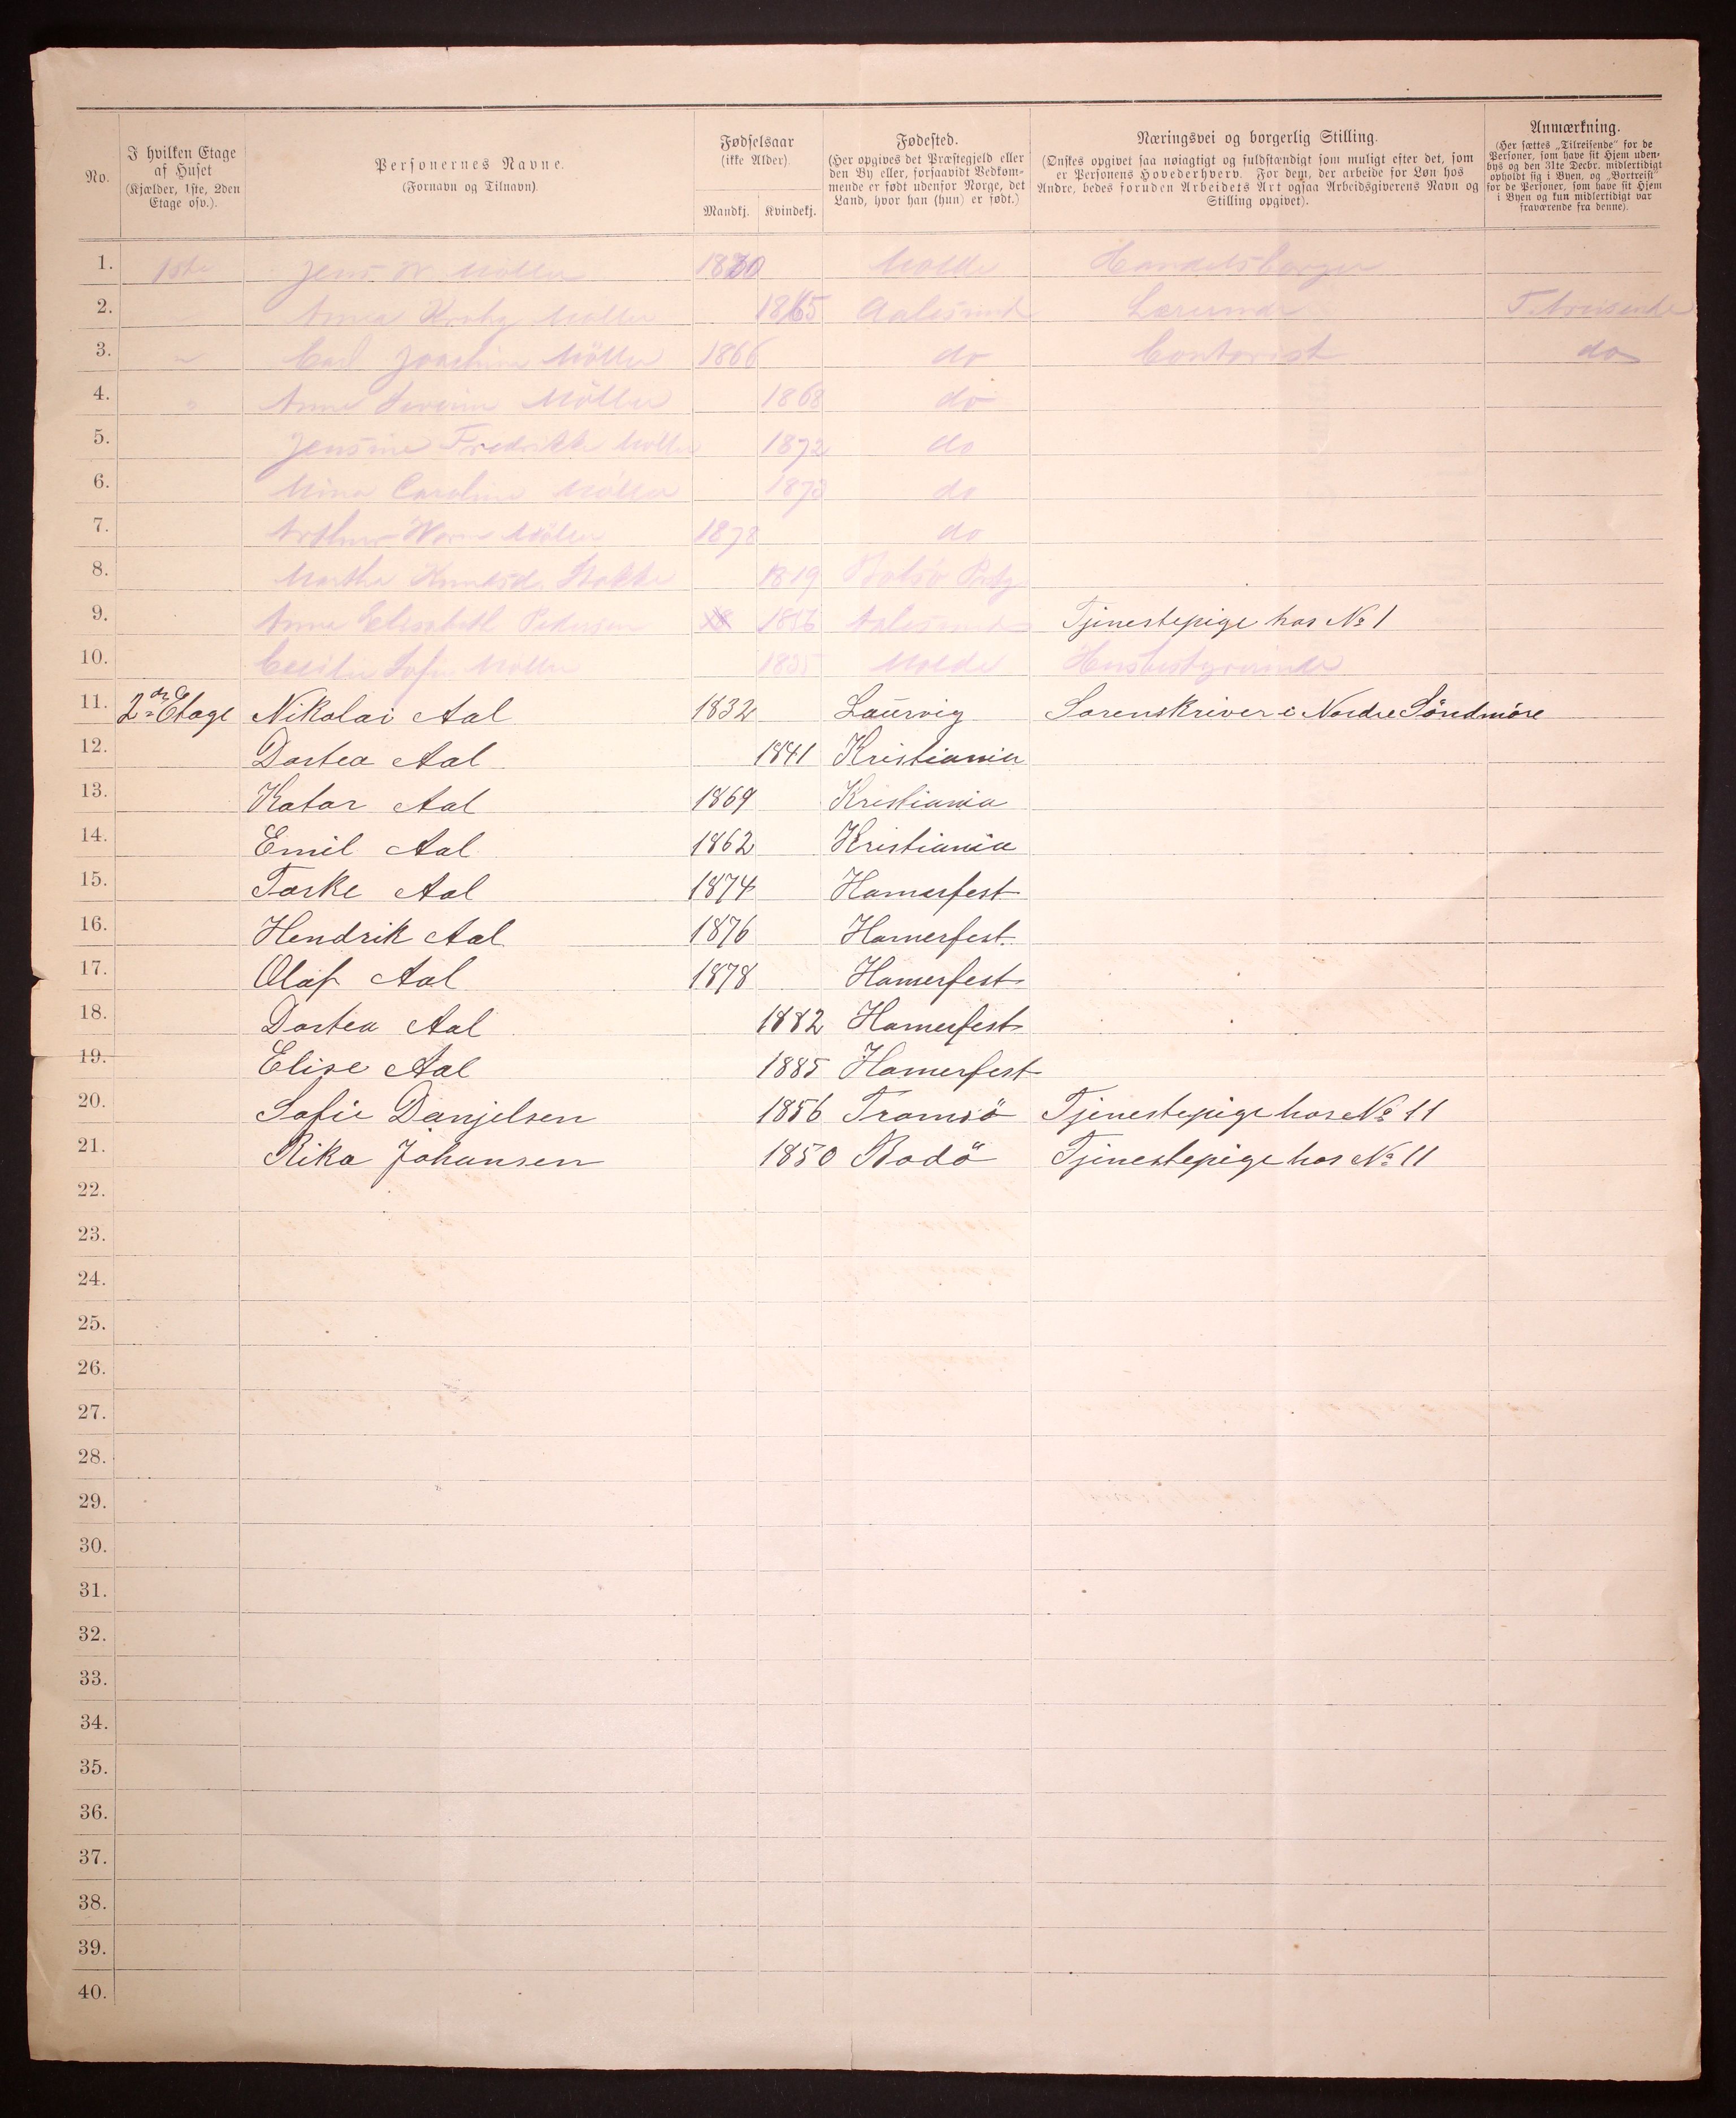 No. I hvilken Etage af Huset (Kjælder, 1ste, 2den Etage osv.). Personernes Navne. (Fornavn og Tilnavn). Fødselsaar (ikke Alder). Mandkj. Kvindekj. Fødested. (Her opgives det Præstegjeld eller den By eller, forsaavidt Vedkommende er født udenfor Norge, det Land, hvor han (hun) er født.) Næringsvei og borgerlig Stilling. (Ønskes opgivet saa nøiagtigt og fuldstændigt som muligt efter det, som er Personens Hovederhverv. For dem, der arbeide for Løn hos Andre, bedes foruden Arbeidets Art ogsaa Arbeidsgiverens Navn og Stilling opgivet). Anmærkning. (Her sættes „Tilreisende“ for de Personer, som have sit Hjem udenbys og den 31te Decbr. midlertidigt opholdt sig i Byen, og „Bortreist“ for de Personer, som have sit Hjem i Byen og kun midlertidigt var fraværende fra denne).
1. 1ste Jens W Möller 1830 Molde Handelsborger
2. Anna Møller 1865 Aalesund Lærerinde Tilreisende
3. " Carl Joachim Möller 1866 do Contorist do
4. " Anne Severine Möller 1868 do
5. Jensine Fredrikke Möller 1872 do
6. Mina Caroline Möller 1873 do
7. Arthur Möller 1878 do
8. Martha Knudsd. Stokke 1819 Bolsö
9. Anna Elisabeth Pedersen 1856 Aalesund Tjenestepige hos No 1
10. Cecilie Sofie Möller 1835 Molde Husbestyrerinde
11. 2den Etage Nikolai Aal 1832 Laurvig Sorenskriver i Nordre Söndmöre
12. Dortea Aal 1841 Kristiania
13. Kator Aal 1869 Kristiania
14. Emil Aal 1862 Kristiania
15. Terke Aal 1874 Hamerfest
16. Hendrik Aal 1876 Hamerfest.
17. Olaf Aal 1878 Hamerfest
18. Dortea Aal 1882 Hamerfest
19. Elise Aal 1885 Hamerfest
20. Sofie Danjelsen 1856 Tromsö Tjenestepige hos No 11
21. Rika Johansen 1850 Bodö Tjenestepige hos No 11
22.
23.
24.
25.
26.
27.
28.
29.
30.
31.
32.
33.
34.
35.
36.
37.
38.
39.
40.